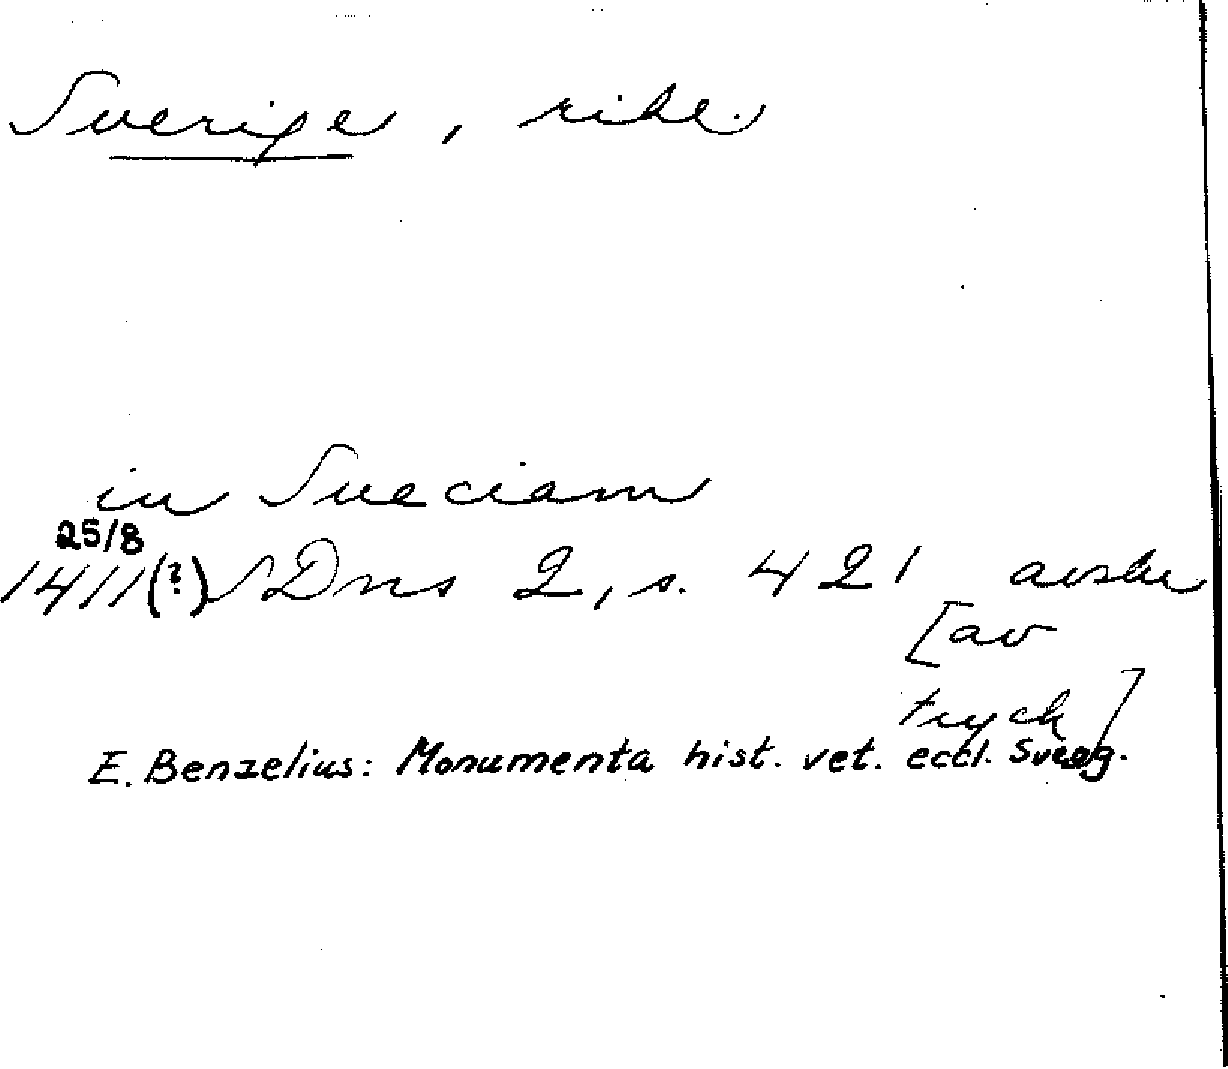 Sverige, rike.
in Sueciam
25/8
1411(?) SDns 2, s. 421 avskr
[av
tryck]
E. Benzelius: Monumenta hist. vet. eccl. Sveog.